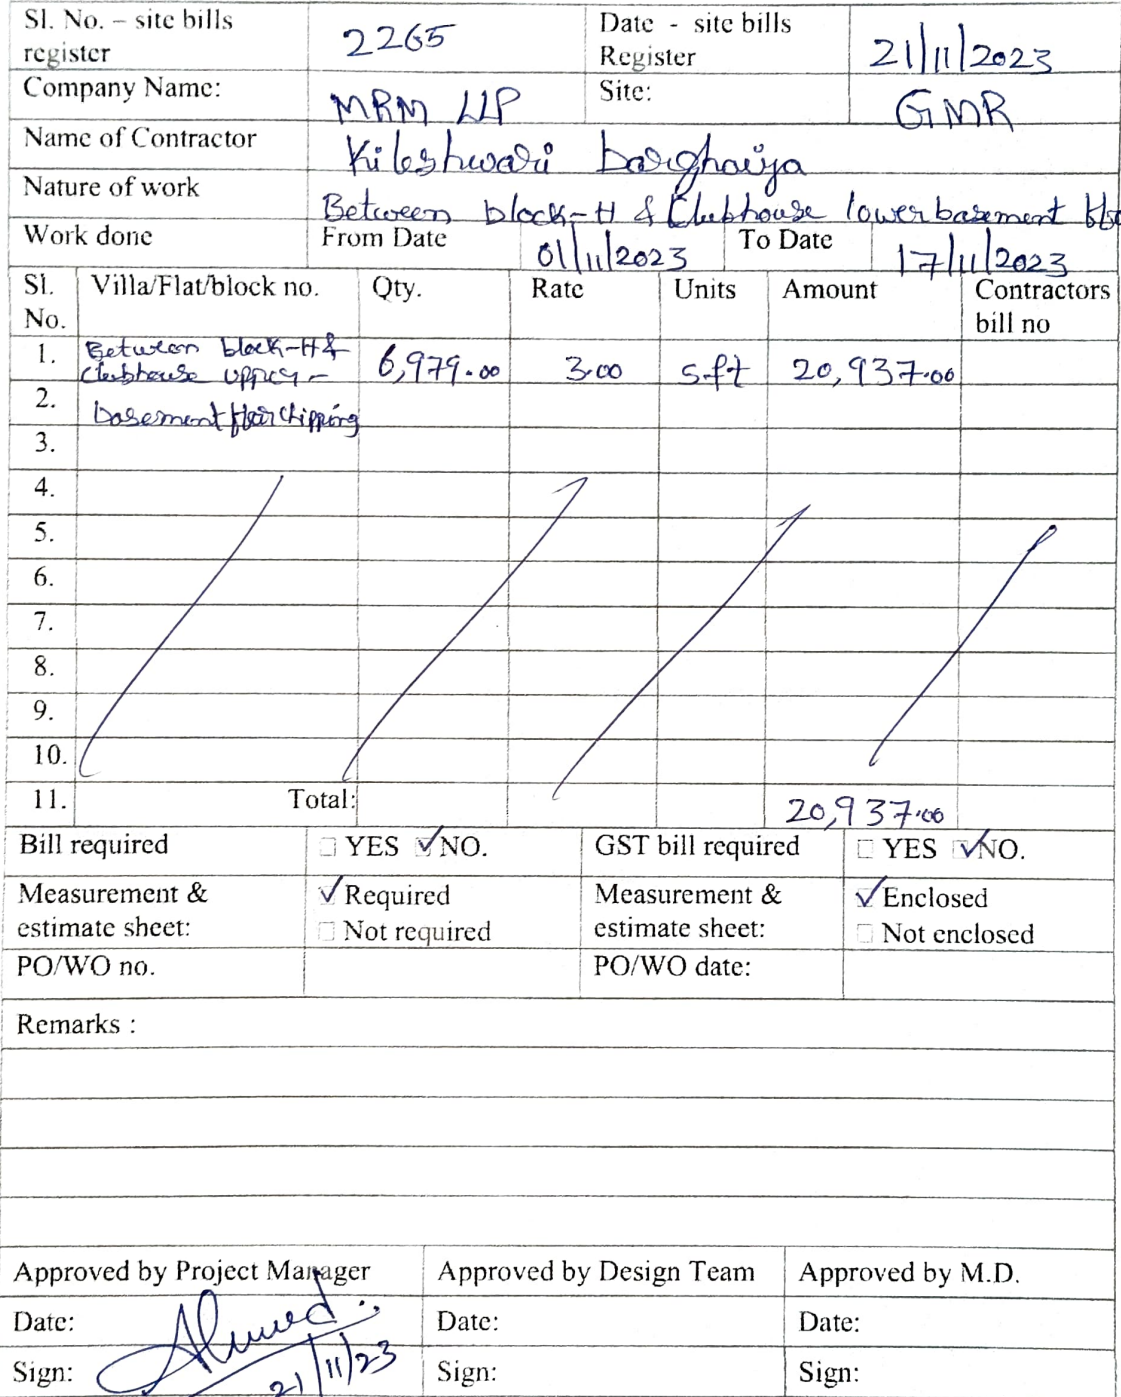 Sl. No. – site bills register 2265 Date - site bills Register 21/11/2023
Company Name: MRM LLP Site: GMR
Name of Contractor Kileshwari Darghaiya
Nature of work Between block-H & Clubhouse lower basement
Work done From Date 01/11/2023 To Date 17/11/2023
Sl. No. Villa/Flat/block no. Qty. Rate Units Amount Contractors bill no
1. Between block-H & Clubhouse upper- 6,979.00 3.00 sft 20,937.00
2. basement chipping
3.
4.
5.
6.
7.
8.
9.
10.
11. Total: 20,937.00
Bill required YES ✓NO. GST bill required YES ✓NO.
Measurement & estimate sheet: ✓Required Measurement & estimate sheet: ✓Enclosed
Not required Not enclosed
PO/WO no. PO/WO date:
Remarks :
Approved by Project Manager Approved by Design Team Approved by M.D.
Date: Date: Date:
Sign: Ahmed 21/11/23 Sign: Sign: